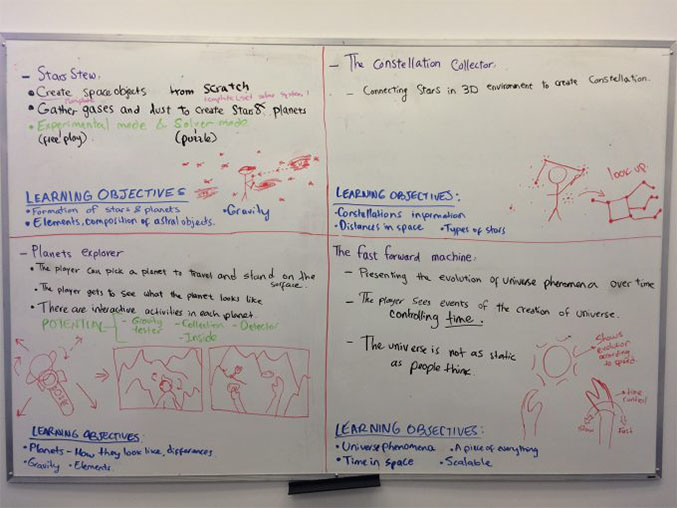 - Stars Stew.
• Create space objects from scratch
• Gather gases and dust to create stars & planets
• Experimental mode & Solver mode
(free play). (puzzle)
LEARNING OBJECTIVES
• Formation of stars & planets
• Gravity
• Elements, composition of astral objects.
- The Constellation Collector.
- Connecting Stars in 3D environment to create Constellation.
look up.
LEARNING OBJECTIVES:
• Constellations information
• Distances in space • Types of stars
- Planets explorer
• The player can pick a planet to travel and stand on the surface.
• The player gets to see what the planet looks like
• There are interactive activities in each planet.
POTENTIAL - Gravity tester - Collection - Detector
- Inside
LEARNING OBJECTIVES:
• Planets - How they look like, differences.
• Gravity • Elements.
The fast forward machine.
- Presenting the evolution of universe phenomena over time
- The player sees events of the creation of universe.
controlling time.
- The universe is not as static
as people think.
Shows
evolution
according
to speed
time
control
Slow Fast
LEARNING OBJECTIVES:
• Universe phenomena • A piece of everything
• Time in space • Scalable